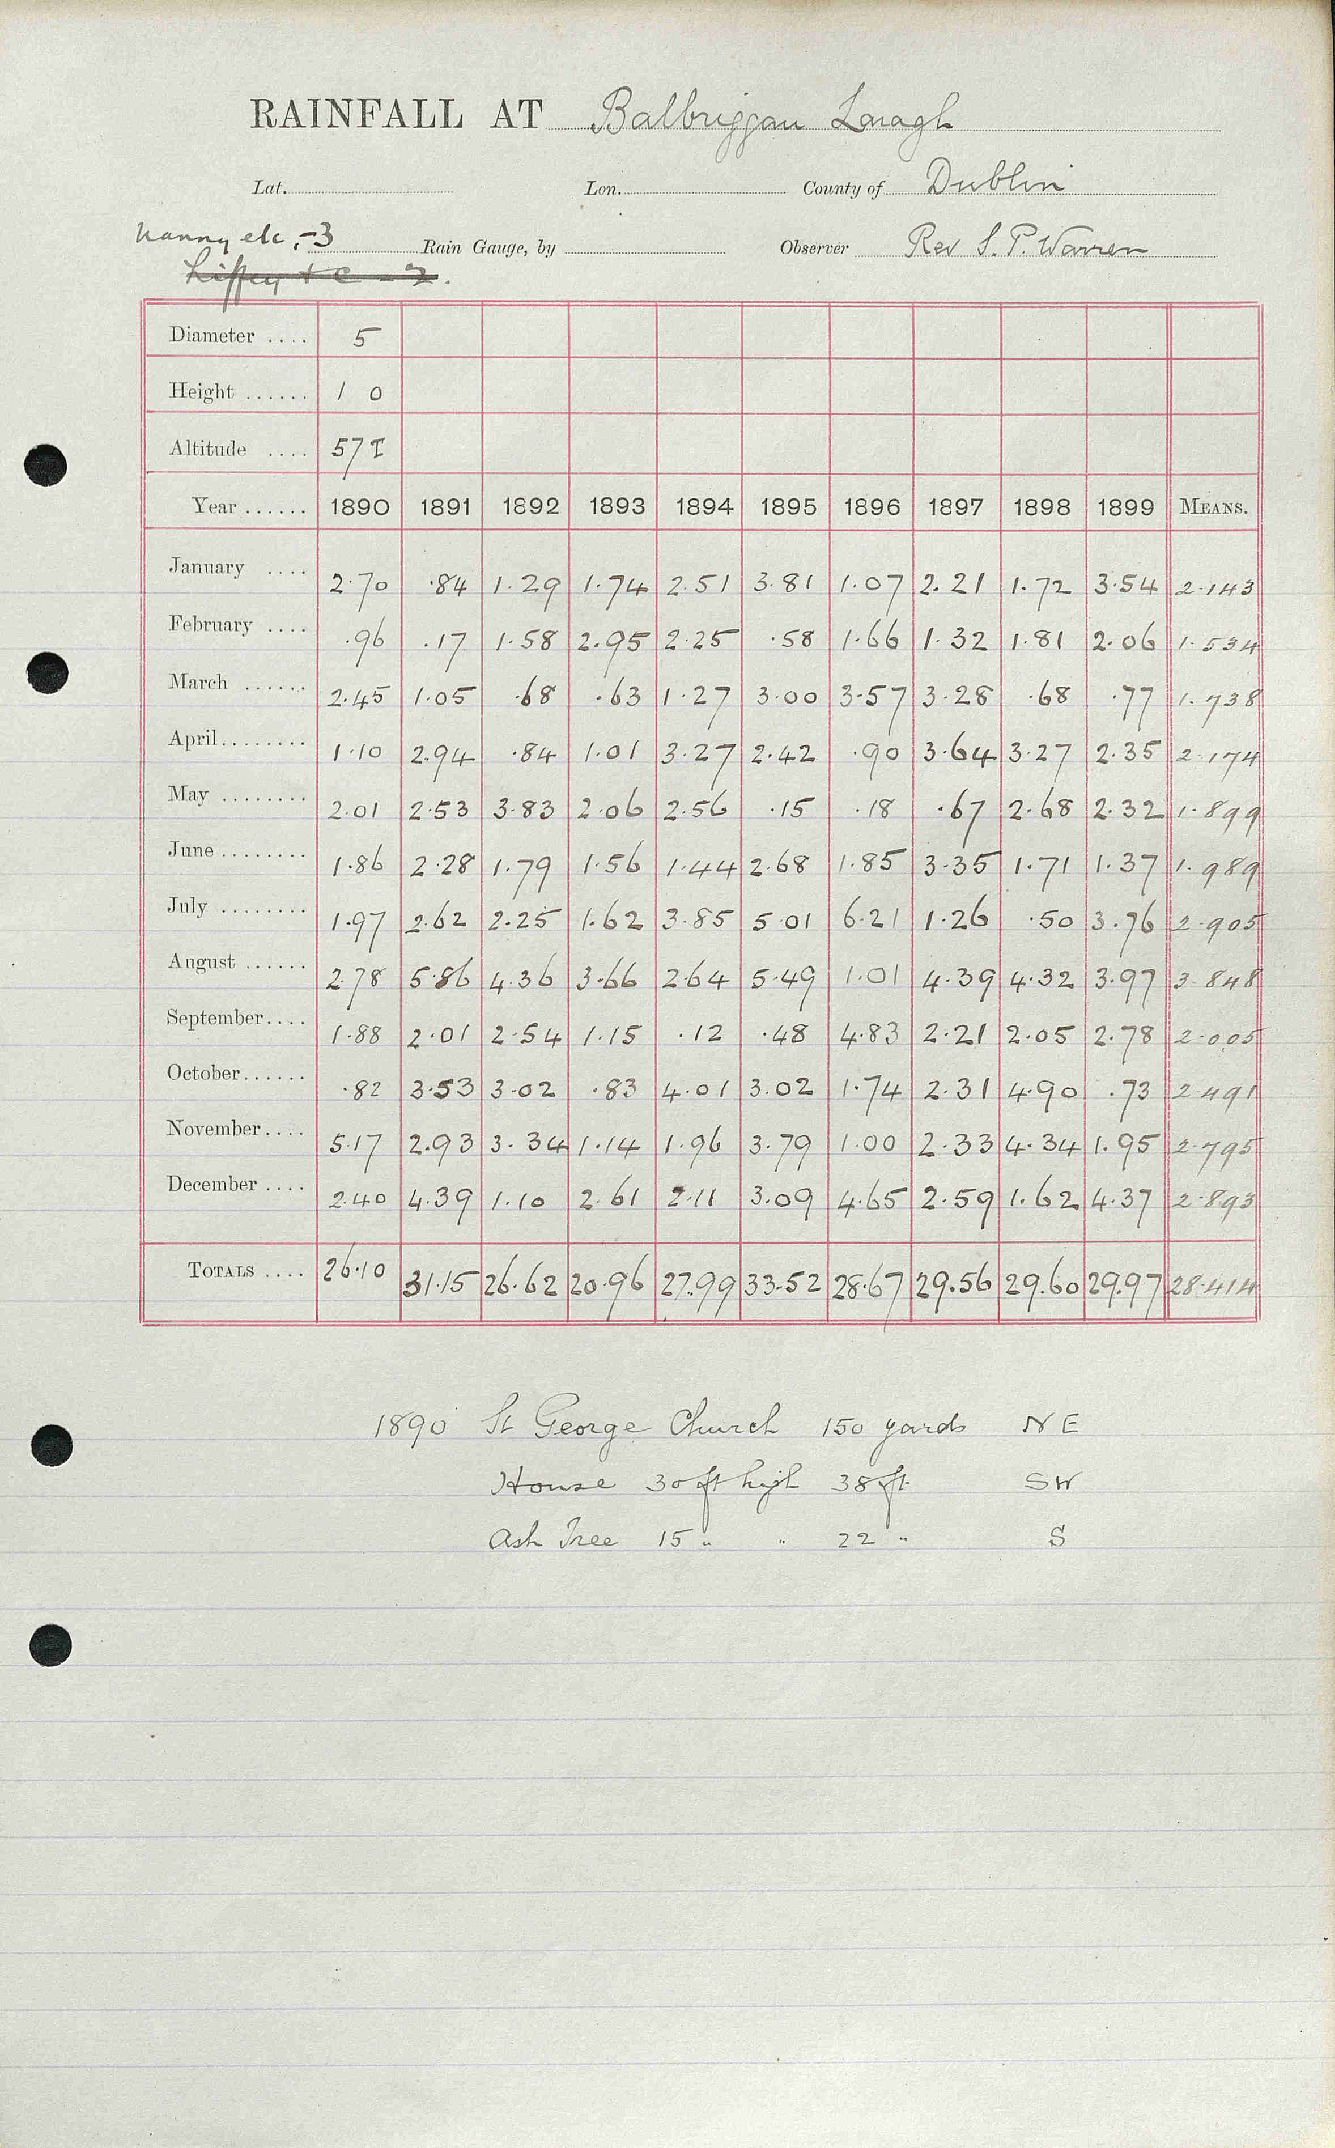 RAINFALL AT Balbriggan Laragh
Lat. Lon. County of Dublin
Nanny etc, -3 Rain Gauge, by Observer Rev S. P. Warren
Liffey + c - 2.
Diameter .... 5
Height ...... 1 0
Altitude .... 57 T
Year ...... 1890 1891 1892 1893 1894 1895 1896 1897 1898 1899 MEANS.
January .... 2.70 .84 1.29 1.74 2.51 3.81 1.07 2.21 1.72 3.54 2.143
February .... .96 .17 1.58 2.95 2.25 .58 1.66 1.32 1.81 2.06 1.534
March ...... 2.45 1.05 .68 .63 1.27 3.00 3.57 3.28 .68 .77 1.738
April ........ 1.10 2.94 .84 1.01 3.27 2.42 .90 3.64 3.27 2.35 2.174
May ........ 2.01 2.53 3.83 2.06 2.56 .15 .18 .67 2.68 2.32 1.899
June ........ 1.86 2.28 1.79 1.56 1.44 2.68 1.85 3.35 1.71 1.37 1.989
July ........ 1.97 2.62 2.25 1.62 3.85 5.01 6.21 1.26 .50 3.76 2.905
August ...... 2.78 5.86 4.36 3.66 2.64 5.49 1.01 4.39 4.32 3.97 3.848
September .... 1.88 2.01 2.54 1.15 .12 .48 4.83 2.21 2.05 2.78 2.005
October ...... .82 3.53 3.02 .83 4.01 3.02 1.74 2.31 4.90 .73 2.491
November .... 5.17 2.93 3.34 1.14 1.96 3.79 1.00 2.33 4.34 1.95 2.795
December .... 2.40 4.39 1.10 2.61 2.11 3.09 4.65 2.59 1.62 4.37 2.893
TOTALS .... 26.10 31.15 26.62 20.96 27.99 33.52 28.67 29.56 29.60 29.97 28.414
1890 St George Church 150 yards NE
House 30 ft high 38 ft SW
Ash Tree 15 " " 22 " S